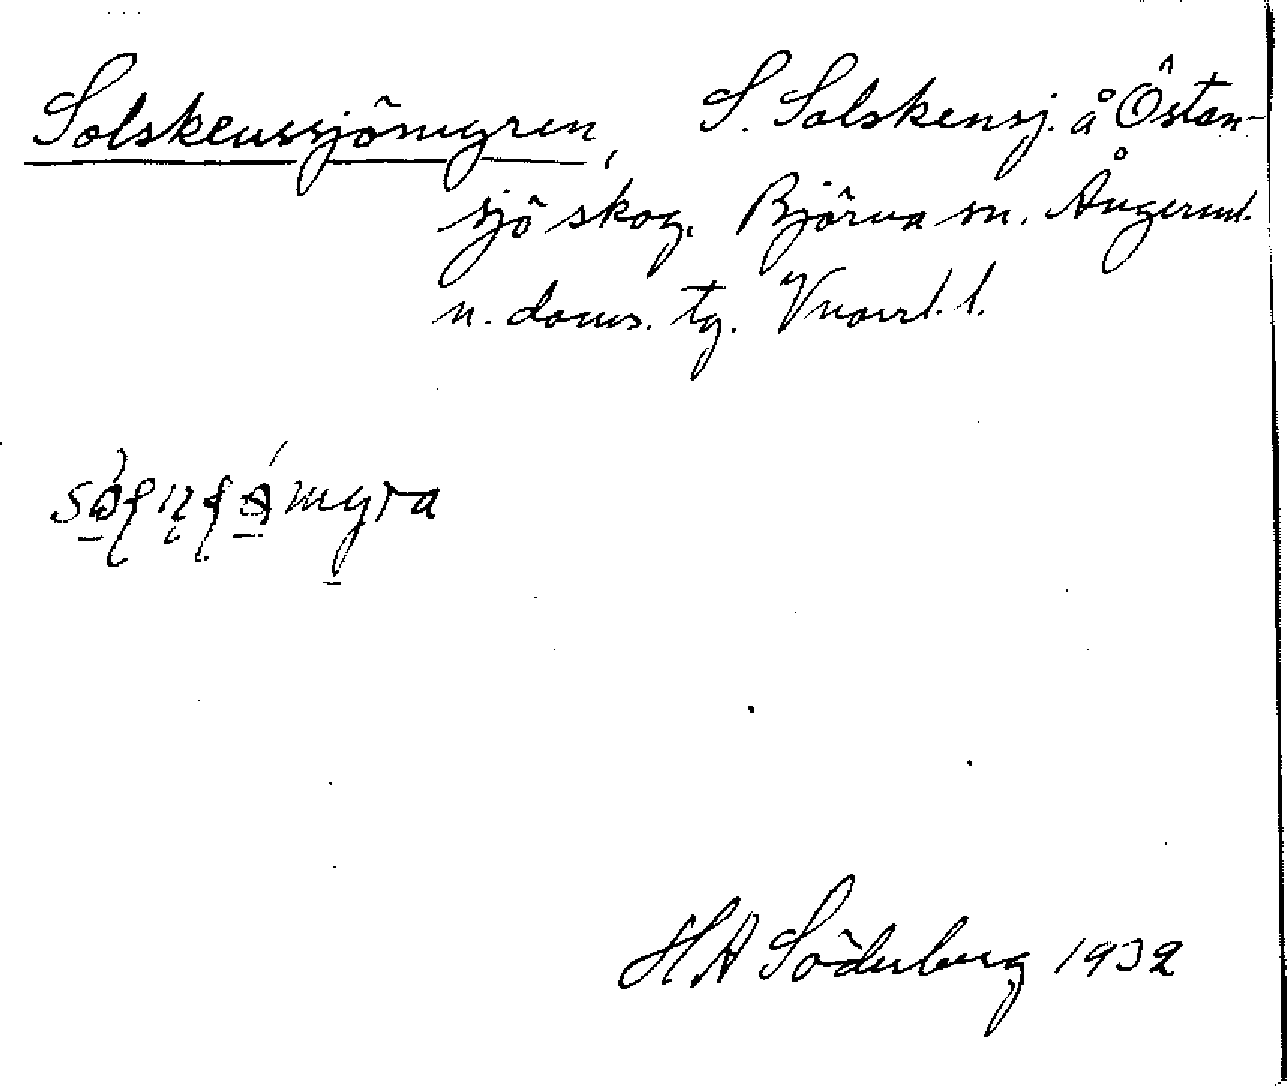 Solskenssjömyren, S. Solskensj. å Östan-
sjö skog. Björna sn. Ångerml.
n. doms. tg. Vnorrl. l.
HA Söderberg 1932